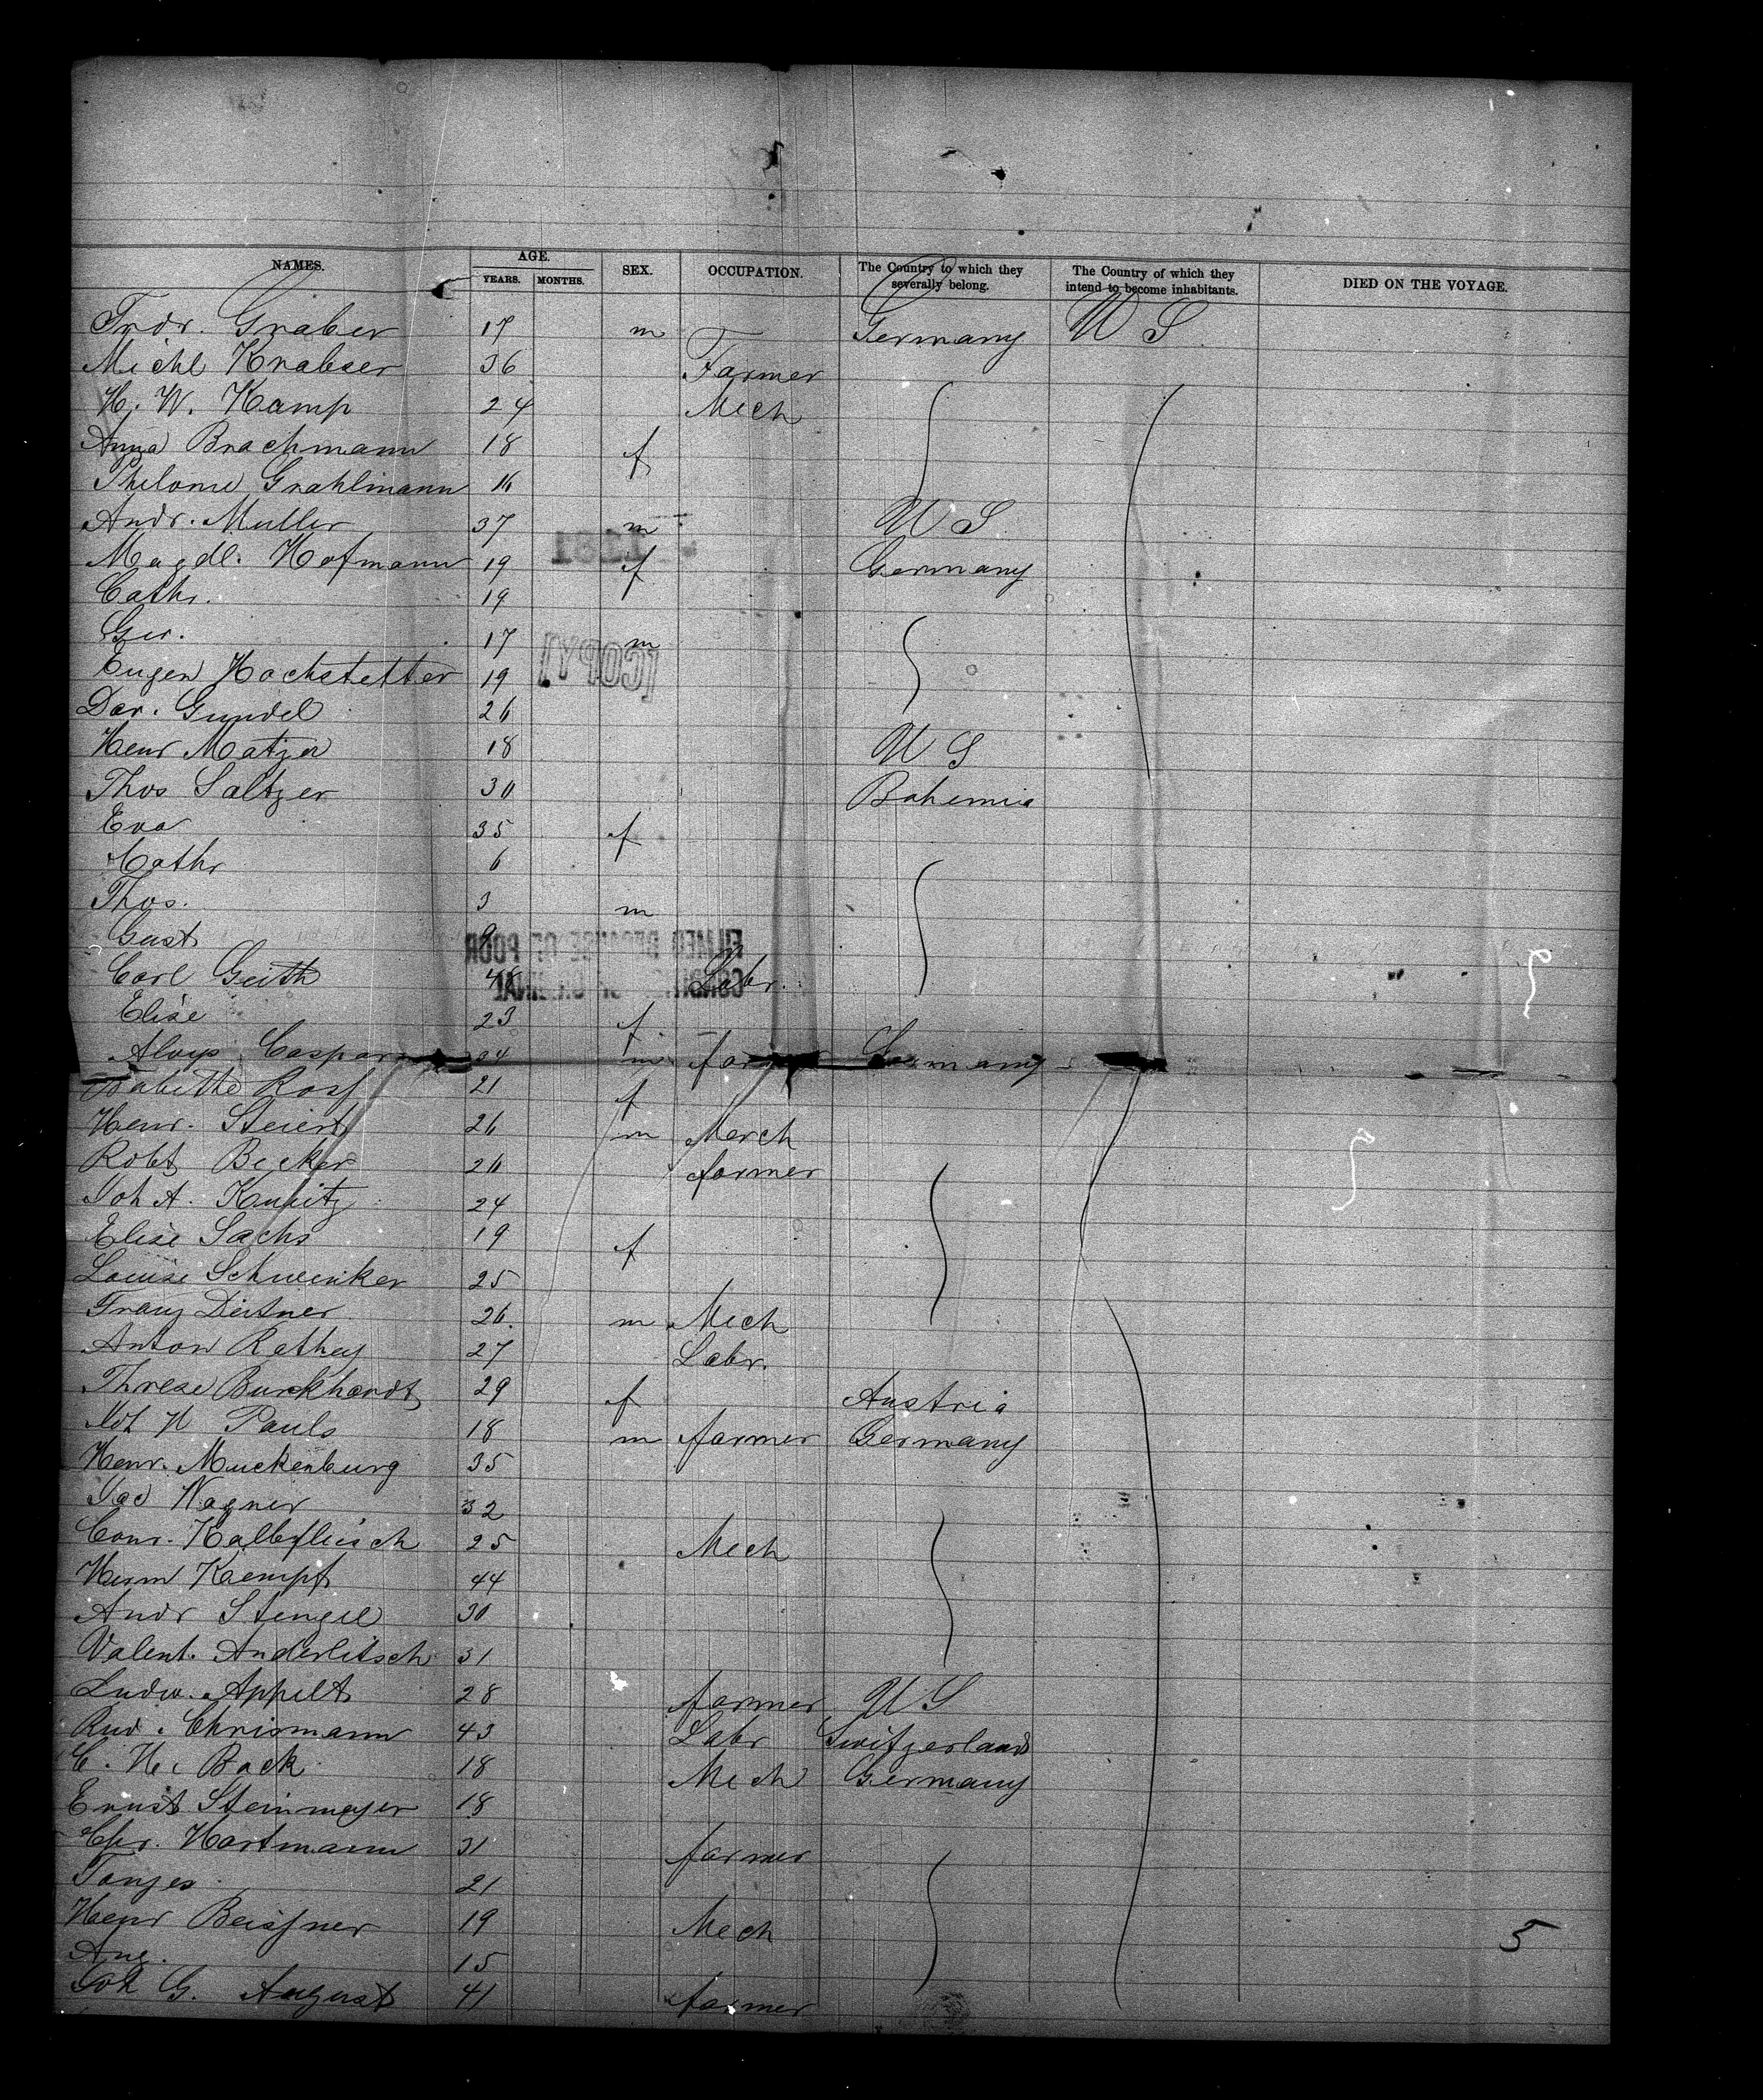 NAMES. AGE. YEARS. MONTHS. SEX. OCCUPATION. The Country to which they severally belong. The Country of which they intend to become inhabitants. DIED ON THE VOYAGE.
Fredr. Graber 17 m Germany U S
Michl 36 Farmer
H. W. Kamp 24 Mech
Anna Brachmann 18 f
Grahlmann 16
Andr. Muller 37 m U S
Magdl. Hofmann 19 f Germany
Cathr. 19
Geo. 17 m
[COPY]
Eugen Hochstetter 19
Gundel 26
Henr 18 U S
Thos Saltzer 30 Bohemia
Eva 35 f
Cathr 6
Thos. 3 m
Gust 9
FILMED BECAUSE OF POOR
CONDITION OF ORIGINAL
Carl Geith 48 Labr.
Elise 23 f
Aloys Caspar 34 m Germany
Babette Ross 21 f
Henr. Steiert 26 m Merch
Robt Becker 26 farmer
Joh A. 24
Elise Sachs 19 f
Louise Schwenker 25
Franz 26. m Mech
Anton Rathey 27 Labr.
Threse Burkhardt 29 f Austria
Pauls 18 m farmer Germany
Henr. Muckenburg 35
Jac Wagner 32
Conr. Kalbfleisch 25 Mech
Herm Kaempf 44
Andr Stengel 30
Valent. Anderlitsch 31
Ludw. Appelt 28 farmer U S
Rud. Chrismann 43 Labr Switzerland
C. H. Back 18 Mech Germany
Ernst Steinmeyer 18
Chr. Hartmann 31 farmer
Tonjes 21
Henr Beissner 19 Mech
Aug. 15
Joh G. August 41 farmer
5